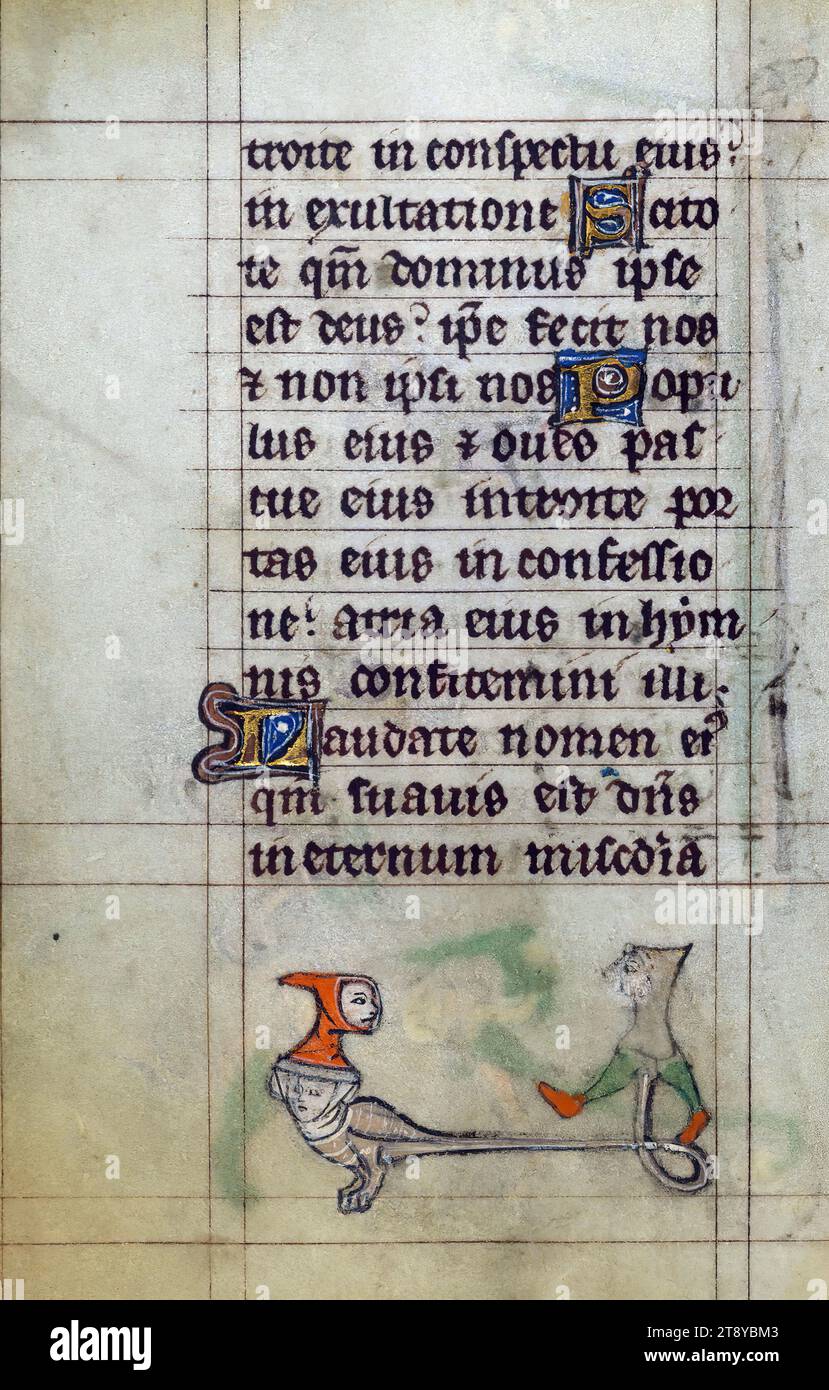 troite in conspectu eius?
in exultatione Scito
te qm̄ dominus ipse
est deus? ip̄e fecit nos
⁊ non ipsi nos Popu
lus eius ⁊ oues pas
cue eius introite por
tas eius in confessio
ne? atria eius in hym
nis confitemini illi.
Laudate nomen ei9
qm̄ suauis est dn̄s
in eternum misc̄dia
alamy
alamy
Image ID: 2T8YBM3
www.alamy.com